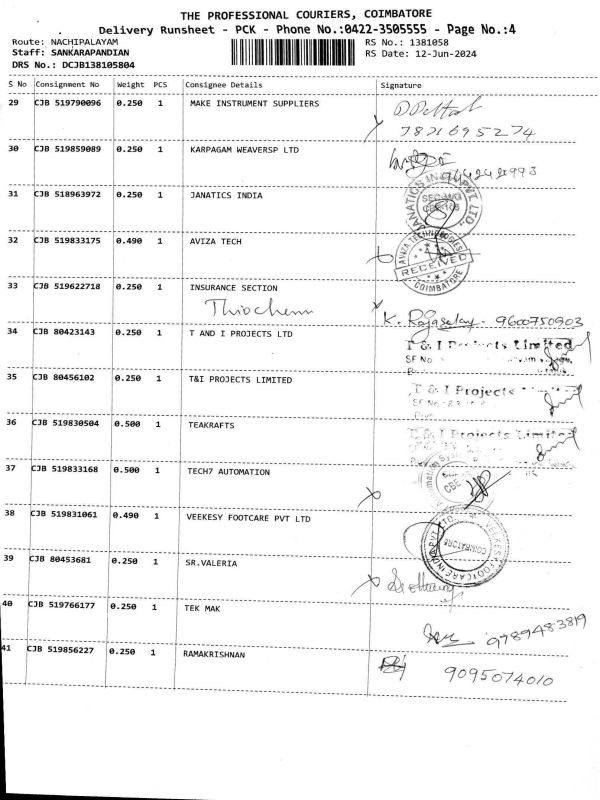 THE PROFESSIONAL COURIERS, COIMBATORE
Delivery Runsheet - PCK - Phone No.:0422-3505555 - Page No.:4
Route: NACHIPALAYAM
RS No.: 1381058
Staff: SANKARAPANDIAN
RS Date: 12-Jun-2024
DRS No.: DCJB138105804
S No Consignment No Weight PCS Consignee Details Signature
29 CJB 519790096 0.250 1 MAKE INSTRUMENT SUPPLIERS
7821695274
30 CJB 519859089 0.250 1 KARPAGAM WEAVERSP LTD
31 CJB 518963972 0.250 1 JANATICS INDIA
JANATICS INDIA PVT. LTD.,
32 CJB 519833175 0.490 1 AVIZA TECH
AVIZA TECHNOLOGIES
RECEIVED
COIMBATORE
33 CJB 519622718 0.250 1 INSURANCE SECTION
Thiochem
K. Rajaselay. 9600750903
34 CJB 80423143 0.250 1 T AND I PROJECTS LTD
T & I Projects Limited
SF No
35 CJB 80456102 0.250 1 T&I PROJECTS LIMITED
T & I Projects
36 CJB 519830504 0.500 1 TEAKRAFTS
T & I Projects Limited
37 CJB 519833168 0.500 1 TECH7 AUTOMATION
CBE
38 CJB 519831061 0.490 1 VEEKESY FOOTCARE PVT LTD
VEEKESY FOOTCARE INDIA PVT LTD
COIMBATORE
39 CJB 80453681 0.250 1 SR.VALERIA
40 CJB 519766177 0.250 1 TEK MAK
9789483819
41 CJB 519856227 0.250 1 RAMAKRISHNAN
9095074010